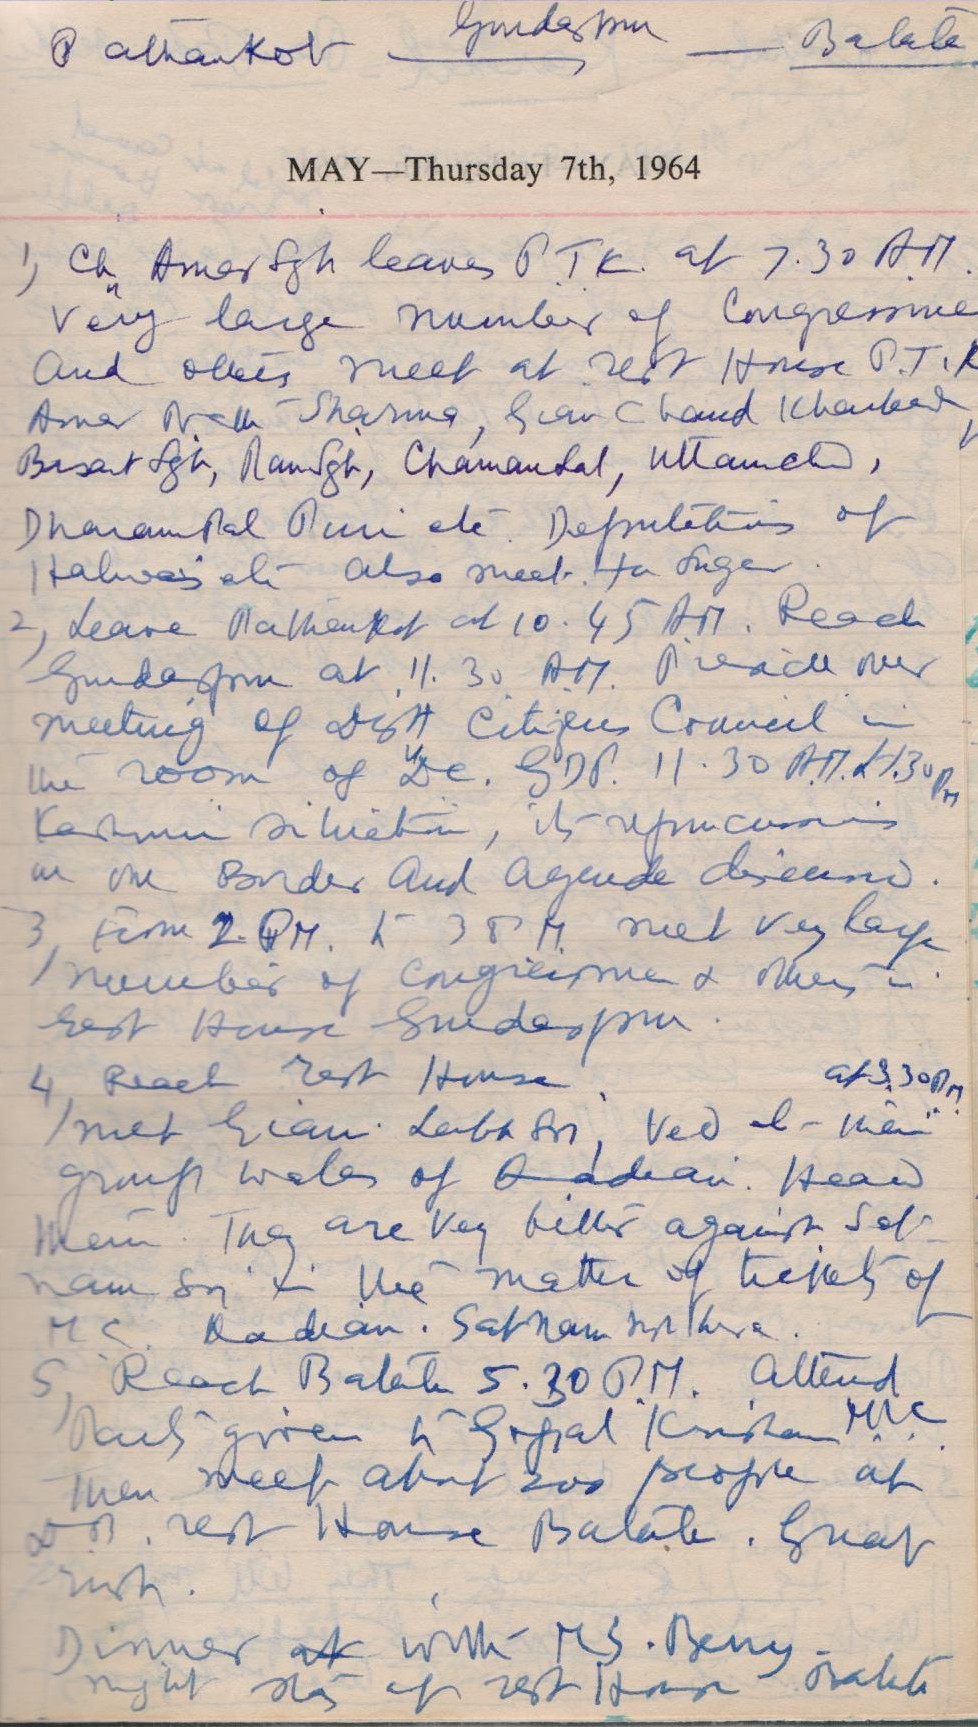 Pathankot — Gurdaspur — Batala
MAY—Thursday 7th, 1964
1, Ch. Amar Sgh leaves P.T.K. at 7.30 A.M.
Very large number of Congressme
and others meet at rest House P.T.K
Amar Nath Sharma, Gian Chand
Basant Sgh, Ram Sgh, Chamanlal, Uttamchd,
Dharampal Puri etc. Deputations of
Halwais etc also meet for Sugar.
2, Leave Pathankot at 10.45 A.M. Reach
Gurdaspur at 11.30 A.M. Preside over
meeting of Distt Citizens Council in
the room of DC. GDP. 11.30 A.M. to 1.30 PM
Kashmir situation, its repercussions
on our Border and agenda discussed.
3, From 2 P.M. to 3 P.M. met very large
number of Congressmen & others in
rest House Gurdaspur.
4, Reach rest House at 3.30 P.M.
met Giani Labh Sgh, Ved etc their
group walas of Qadian. Heard
them. They are very bitter against Sat-
nam Sgh in the matter of tickets of
M.C. Kadian. Satnam not there.
5, Reach Batala 5.30 P.M. Attend
Party given to Gopal Krishan M.L.C.
Then meet about 200 people at
rest House Batala. Great
rush.
Dinner at with M.S. Berry.
night stay at rest House Batala